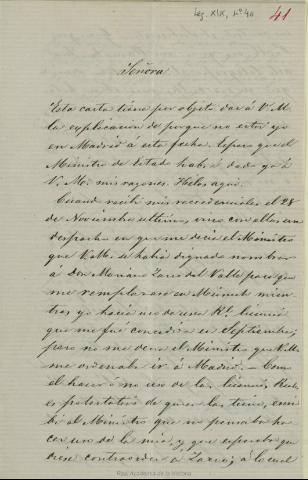 Leg. XIX, nº 40
41
Señora
Esta carta tiene por objeto dar á V. M.
la explicacion de porque no estoy yo
en Madrid á esta fecha. Espero que el
Ministro de Estado habrá dado ya á
V. M. mis razones. Hélas aquí.
Cuando recibí mis recredenciales el 28
de Noviembre ultimo, vino con ellas un
despacho en que me decia el Ministro
que V. M. se habia dignado nombrar
á Don Mariano del Valle para que
me remplazara en Munich mien-
tras yo hacia uso de una Rl. licencia
que me fue concedida en Septiembre;
pero no me decia el Ministro que V. M.
me ordenaba ir á Madrid. Como
el hacer ó no uso de las licencias Reales
es potestativo de quien las tiene, escri-
bí al Ministro que no pensaba ha-
cer uso de la mia, y que esperaba que
diese contraorden á á la cual
Real Academia de la Historia